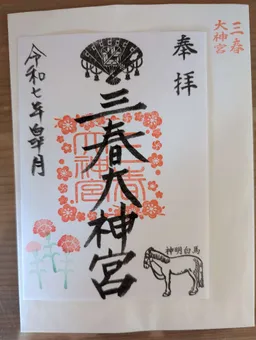 三春
大神宮
奉拝
三春大神宮
三春
大神宮
令和七年
月
神明白馬